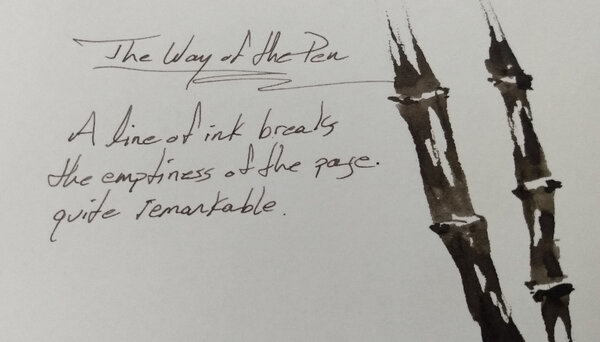 The Way of the Pen
A line of ink breaks
the emptiness of the page.
quite remarkable.